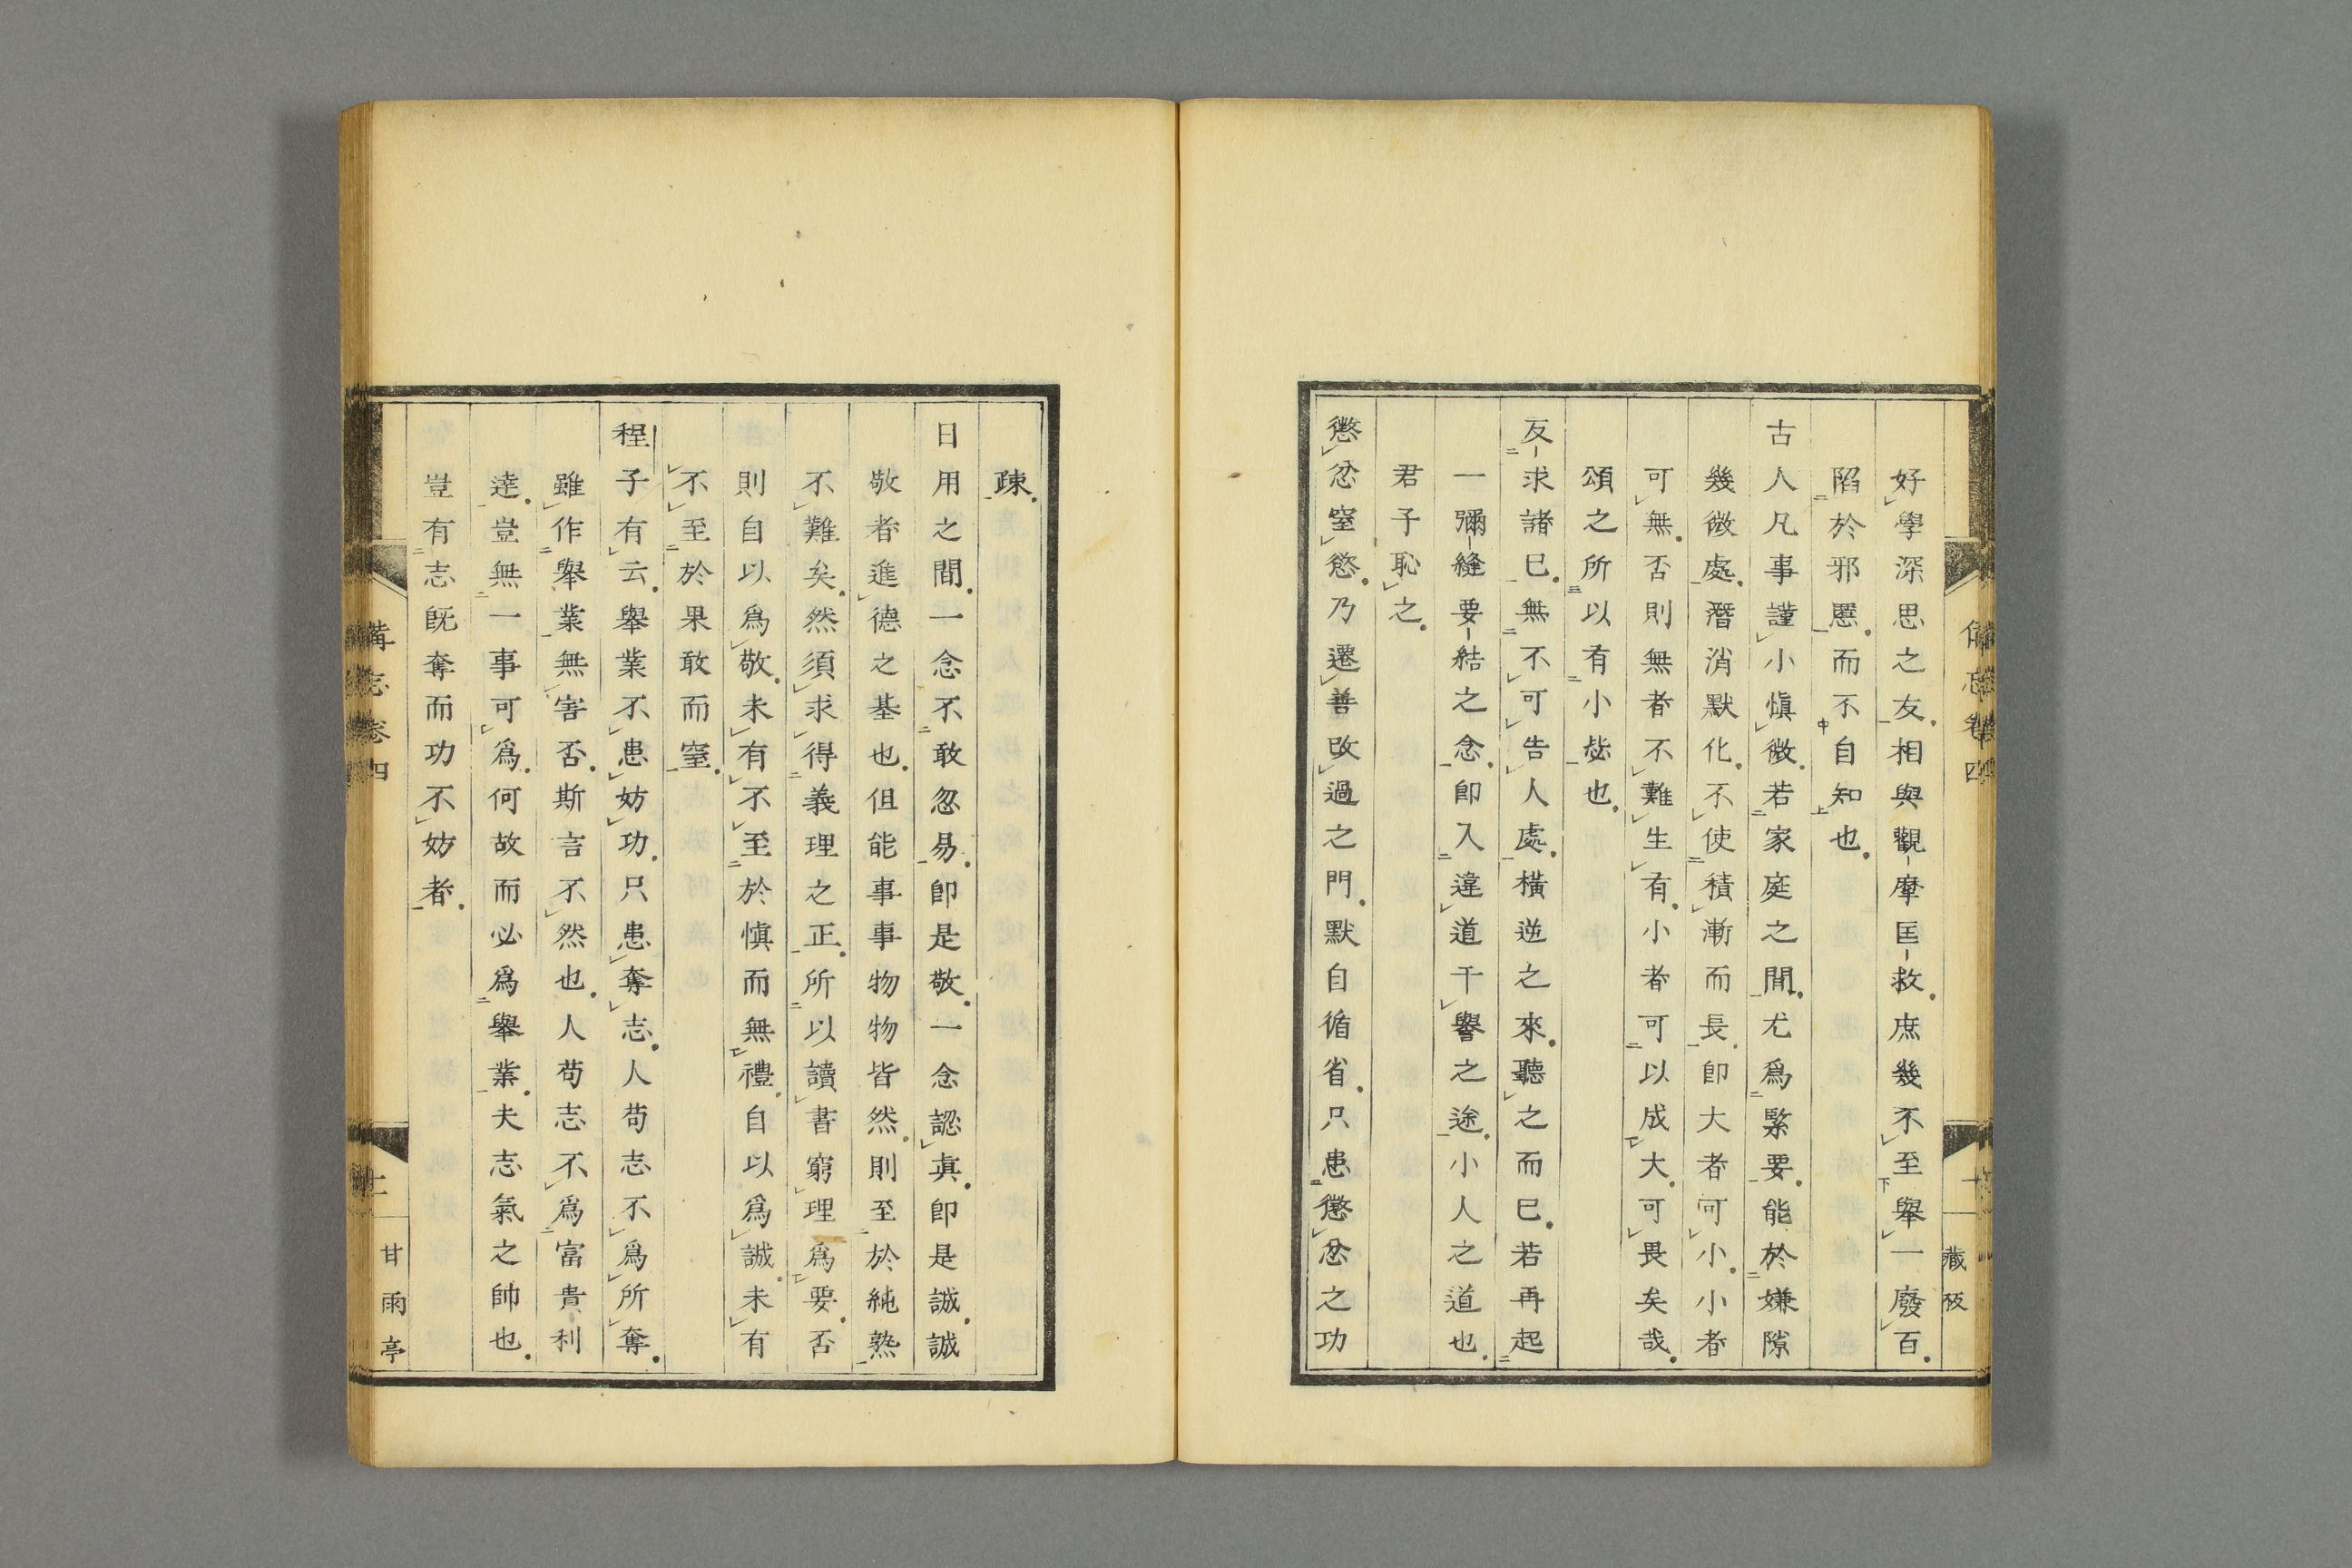 好學深思之友相與觀摩匡救庶幾不至舉一廢百
陷於邪慝而不自知也
古人凡事謹小愼微若家庭之間尤爲緊要能於嫌隙
幾微處潛消默化不使積漸而長卽大者可小小者
可無否則無者不難生有小者可以成大可畏矣哉
頌之所以有小毖也
反求諸已無不可告人處橫逆之來聽之而已若再起
一彌縫要結之念卽入違道干譽之途小人之道也
君子恥之
懲忿窒慾乃遷善改過之門默自循省只患懲忿之功
疎
日用之間一念不敢忽易卽是敬一念認眞卽是誠誠
敬者進德之基也但能事事物物皆然則至於純熟
不難矣然須求得義理之正所以讀書窮理爲要否
則自以爲敬未有不至於愼而無禮自以爲誠未有
不至於果敢而窒
程子有云舉業不患妨功只患奪志人苟志不爲所奪
雖作舉業無害否斯言不然也人苟志不爲富貴利
達豈無一事可爲何故而必爲舉業夫志氣之帥也
豈有志旣奪而功不妨者
備忘卷四
十
藏板
備忘卷四
甘雨亭